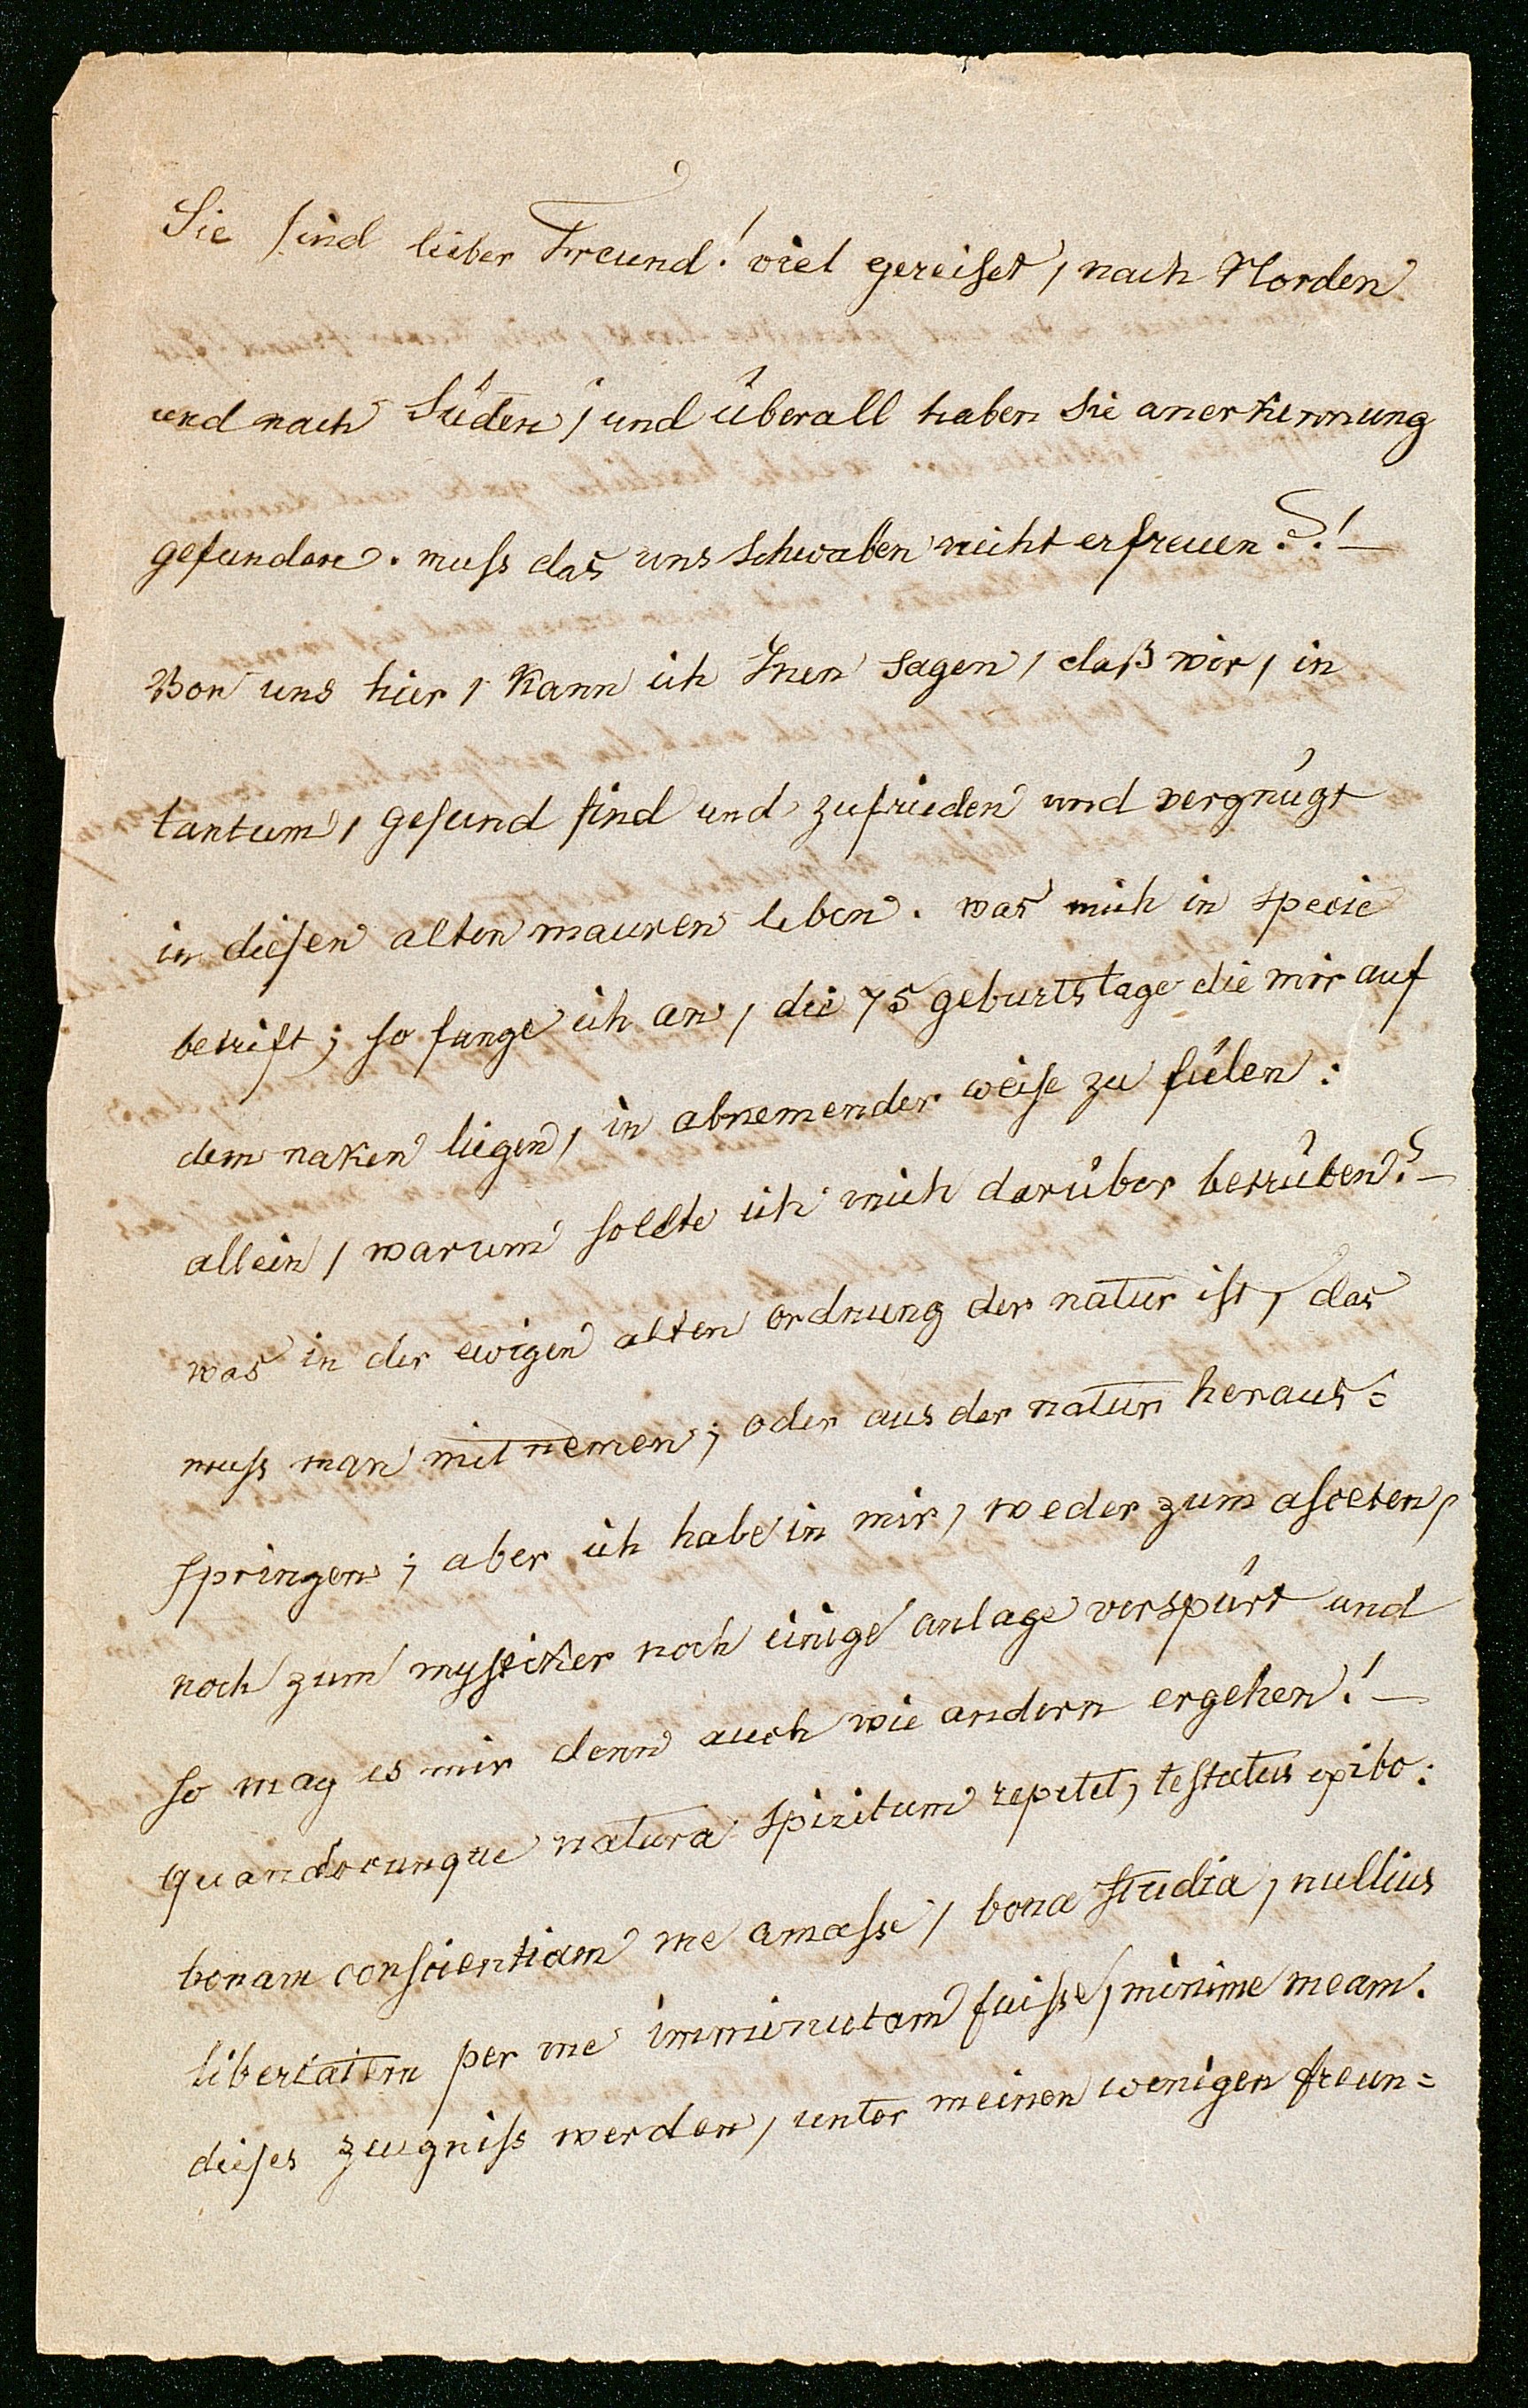 Sie sind lieber Freund! viel gereiset, nach Norden
und nach Süden, und überall haben Sie anerkennung
gefunden. muss das uns Schwaben nicht erfreuen?! –
Von uns hier, kann ich Inen sagen, daß wir, in
tantum, gesund sind und zufrieden und vergnügt
in diesen alten mauren leben. was mich in specie
betrift; so fange ich an, die 75 geburtstage die mir auf
dem naken liegen, in abnemender weise zu fülen:
allein, warum sollte ich mich darüber betrüben? –
was in der ewigen alten ordnung der natur ist, das
muss man mitnemen; oder aus der natur heraus=
springen; aber ich habe in mir, weder zum asceten,
noch zum mysticker noch einige anlage verspürt und
so mag es mir denn auch wie andern ergehen! –
quandocunque natura spiritum repetet, testatus exibo:
bonam conscientiam me amasse, bona studia, nullius
libertatem per me imminutam fuisse, minime meam.
dieses zeugniss werden, unter meinen wenigen freun=